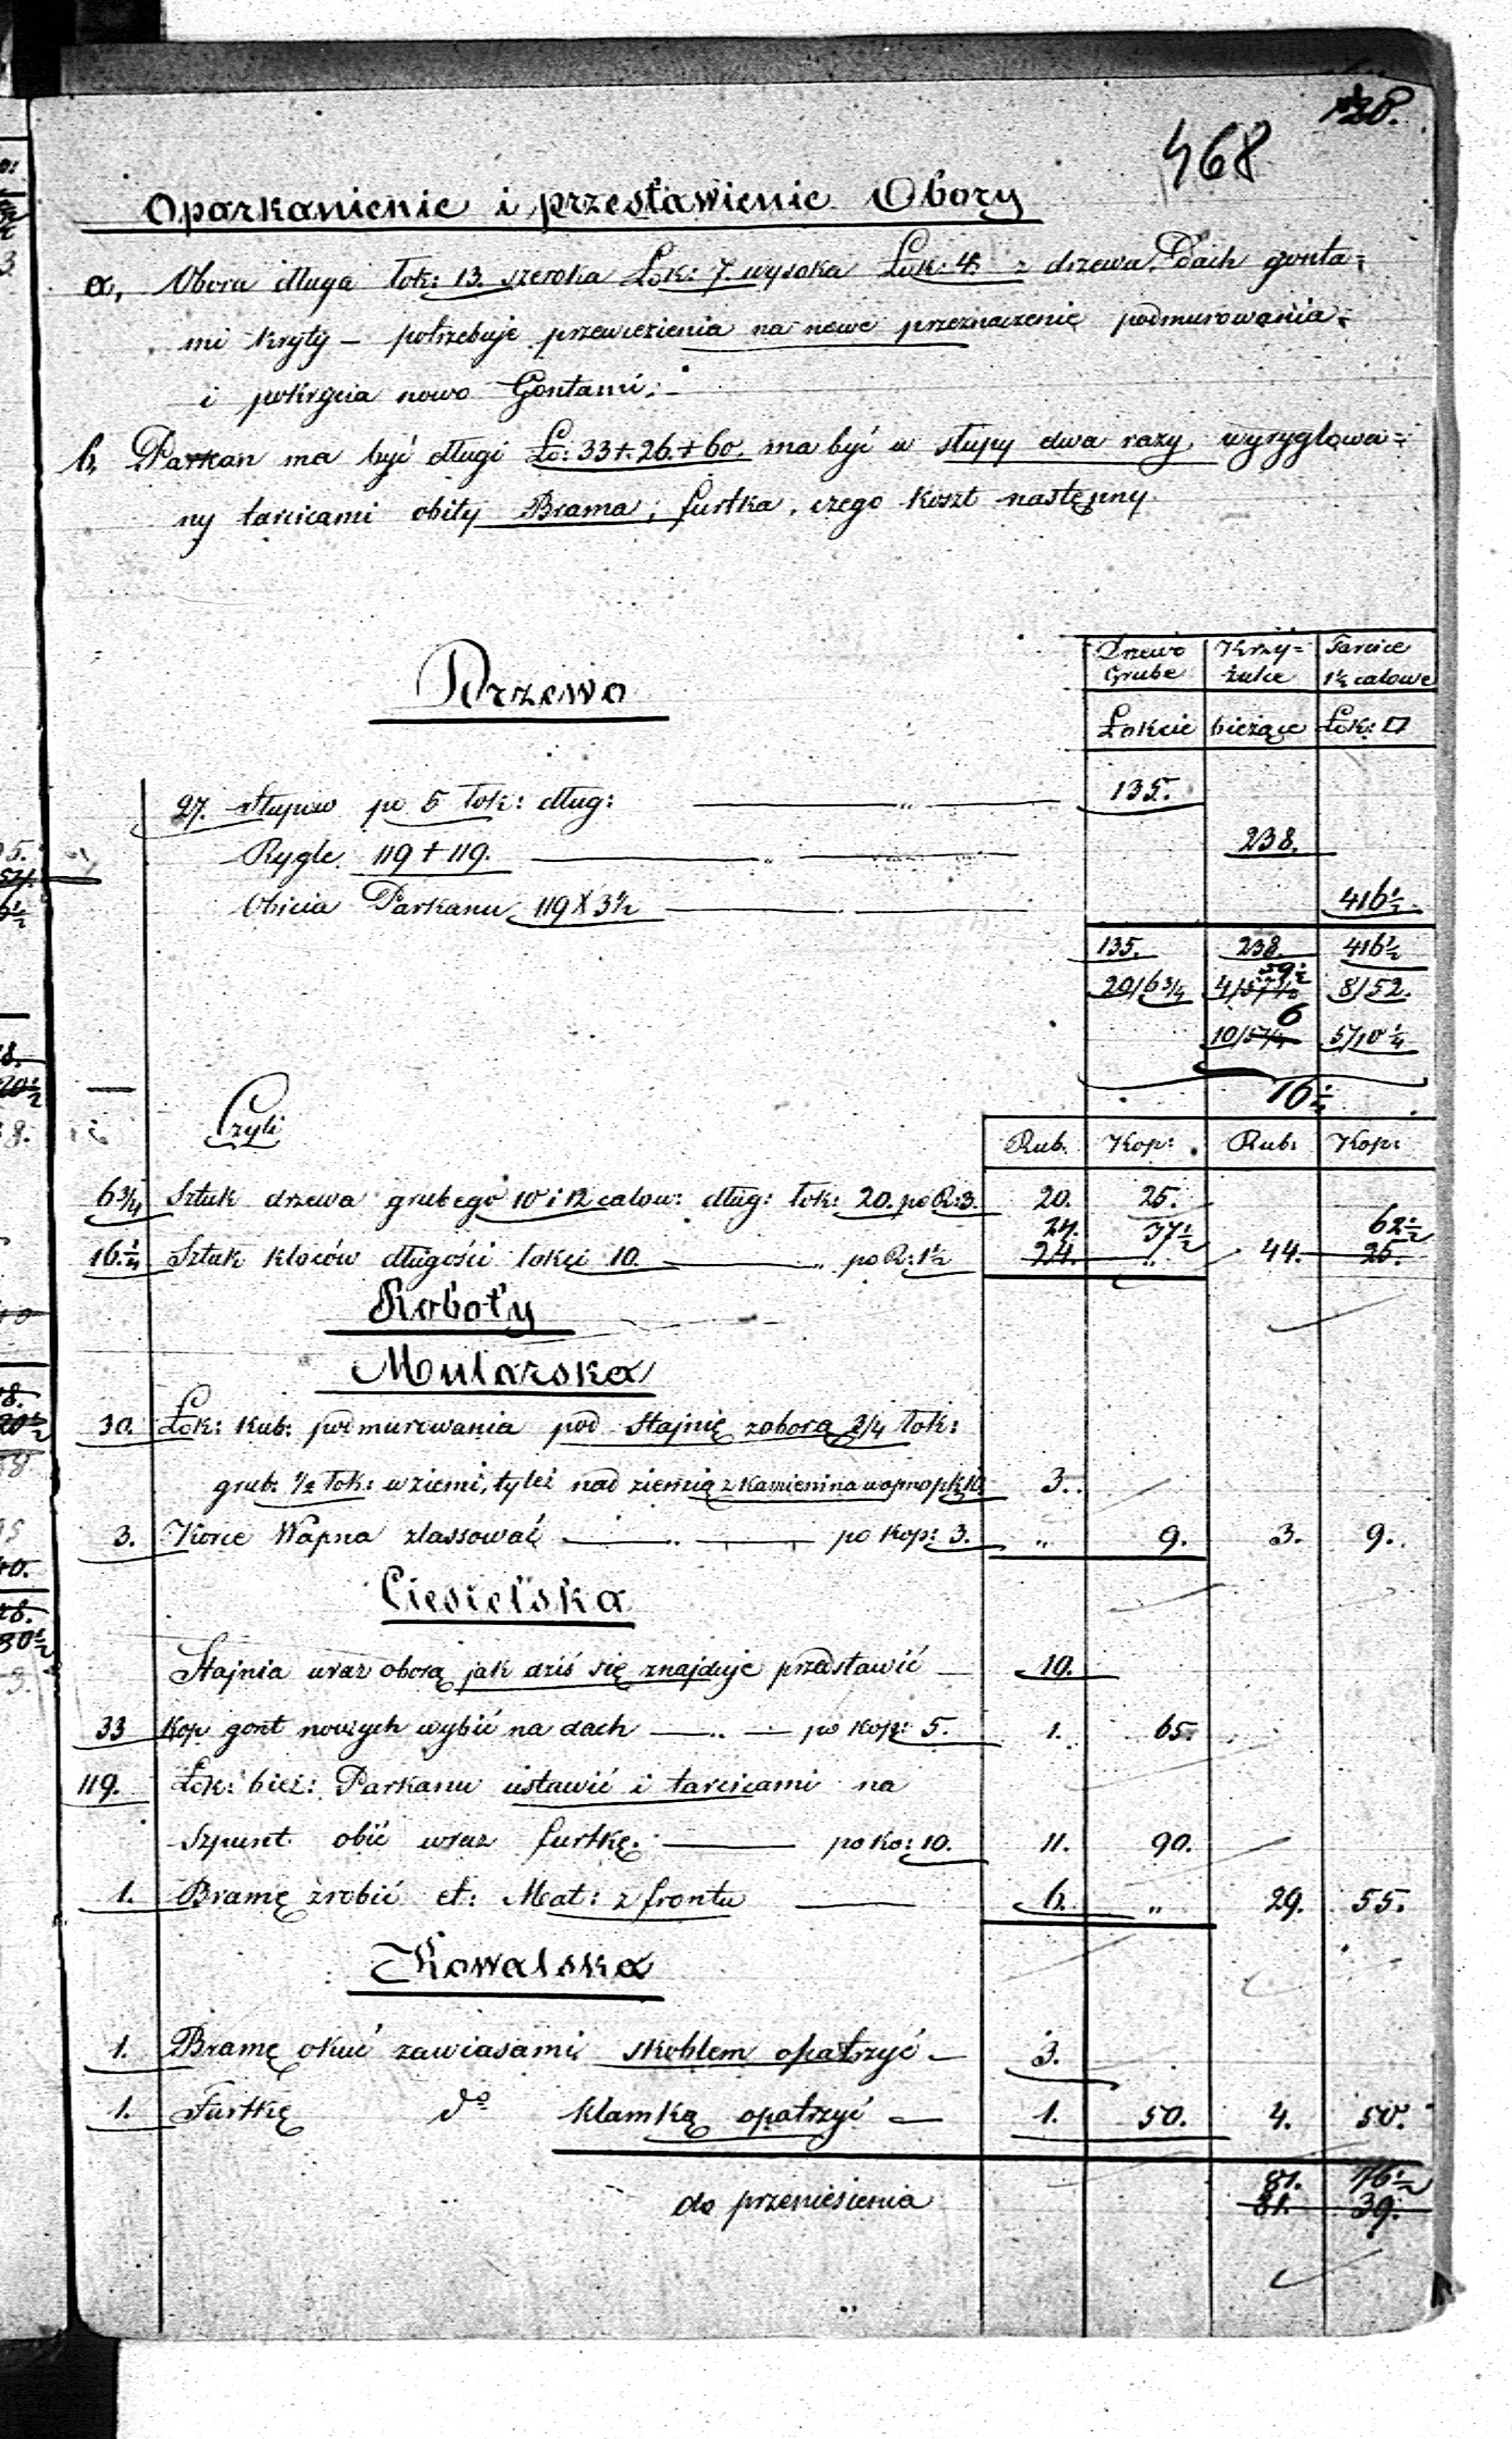 128.
468
Oparkanienie i przestawienie Obory
a, Obora długa łok: 13. szeroka Łok: 7. wysoka Łok: 4. z drzewa. Dach gonta=
mi kryty – potrzebuje przewiezienia na nowe przeznaczenie podmurowania
i pokrycia nowo Gontami.
b, Parkan ma być długi Ło: 33+26+60. ma być w słupy dwa razy, wyryglowa=
ny tarcicami obity Brama, furtka, czego koszt następny
Drzewo Krzy= Tarcice
Grube żulce 1½ calowe
Drzewo
Łokcie bieżące Łok: □
27. Słupow po 5 łok: dług: — „ — 135.
Rygle 119 + 119. — „ — 238.
Obicia Parkanu 119 X 3½ — 416½
135. 238. 416½
59½
20/6¾ 4/57½ 8/52.
6
10/5¾ 5/10¼
16¼
Czyli
Rub. Kop: Rub: Kop:
6¾ Sztuk drzewa grubego 10 i 12 calow: dług: łok: 20. po R: 3. 20. 25.
24. 37½ 62½
16¼ Sztuk kloców długości łokci 10. — „ po R: 1½ 24. „ 44. 25.
Roboty
Mularska
30. Łok: kub: podmurowania pod Stajnię z oborą ¾ łok:
grub: ½ łok: w ziemi, tyleż nad ziemią z kamieni na wapno p k 10 3.
3. Korce Wapna zlassować — „ — po kop: 3. „ 9. 3. 9.
Ciesielska
Stajnia wraz oborą jak dziś się znajduje przestawić — 10.
33 Kop gont nowych wybić na dach — „ — po kop: 5. 1. 65.
119. Łok: bież: Parkanu ustawić i tarcicami na
Szpunt obić wraz furtkę. — po Ko: 10. 11. 90.
1. Bramę zrobić et: Mat: z frontu — 6. „ 29. 55.
Kowalska
1. Bramę okuć zawiasami, skoblem opatrzyć — 3.
1. Furtkę do klamką opatrzyć — 1. 50. 4. 50.
81. 76½
do przeniesienia 81. 39.